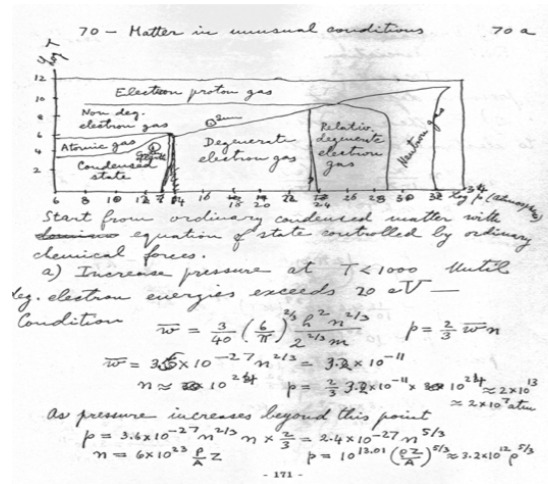 70 – Matter in unusual conditions 70 a
log T
12
10
8
6
4
2
Electron proton gas
Non deg.
electron gas
Sun
Atomic gas
Condensed
state
Degenerate
electron gas
Relativ.
degenerate
electron
gas
Neutron gas
6 8 10 12 14 16 18 20 22 24 26 28 30 32 34 log p
Start from ordinary condensed matter with
equation of state controlled by ordinary
chemical forces.
a) Increase pressure at T < 1000 Until
deg. electron energies exceeds 20 eV —
Condition w̄ = 3/40 (6/π)^{2/3} h² n^{2/3} / 2^{2/3} m p = 2/3 w̄ n
w̄ = 3.6 × 10^{-27} n^{2/3} = 3.2 × 10^{-11}
n ≈ 10^{24} p = 2/3 3.2 × 10^{-11} × 10^{24} ≈ 2 × 10^{13}
≈ 2 × 10^7 atm
As pressure increases beyond this point
p = 3.6 × 10^{-27} n^{2/3} n × 2/3 = 2.4 × 10^{-27} n^{5/3}
n = 6 × 10^{23} ρ/A Z p = 10^{13.01} (ρZ/A)^{5/3} ≈ 3.2 × 10^{12} ρ^{5/3}
- 171 -